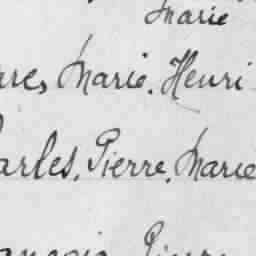 Marie
rre, Marie. Henri
arles, Pierre, Marie
ançois Pierre